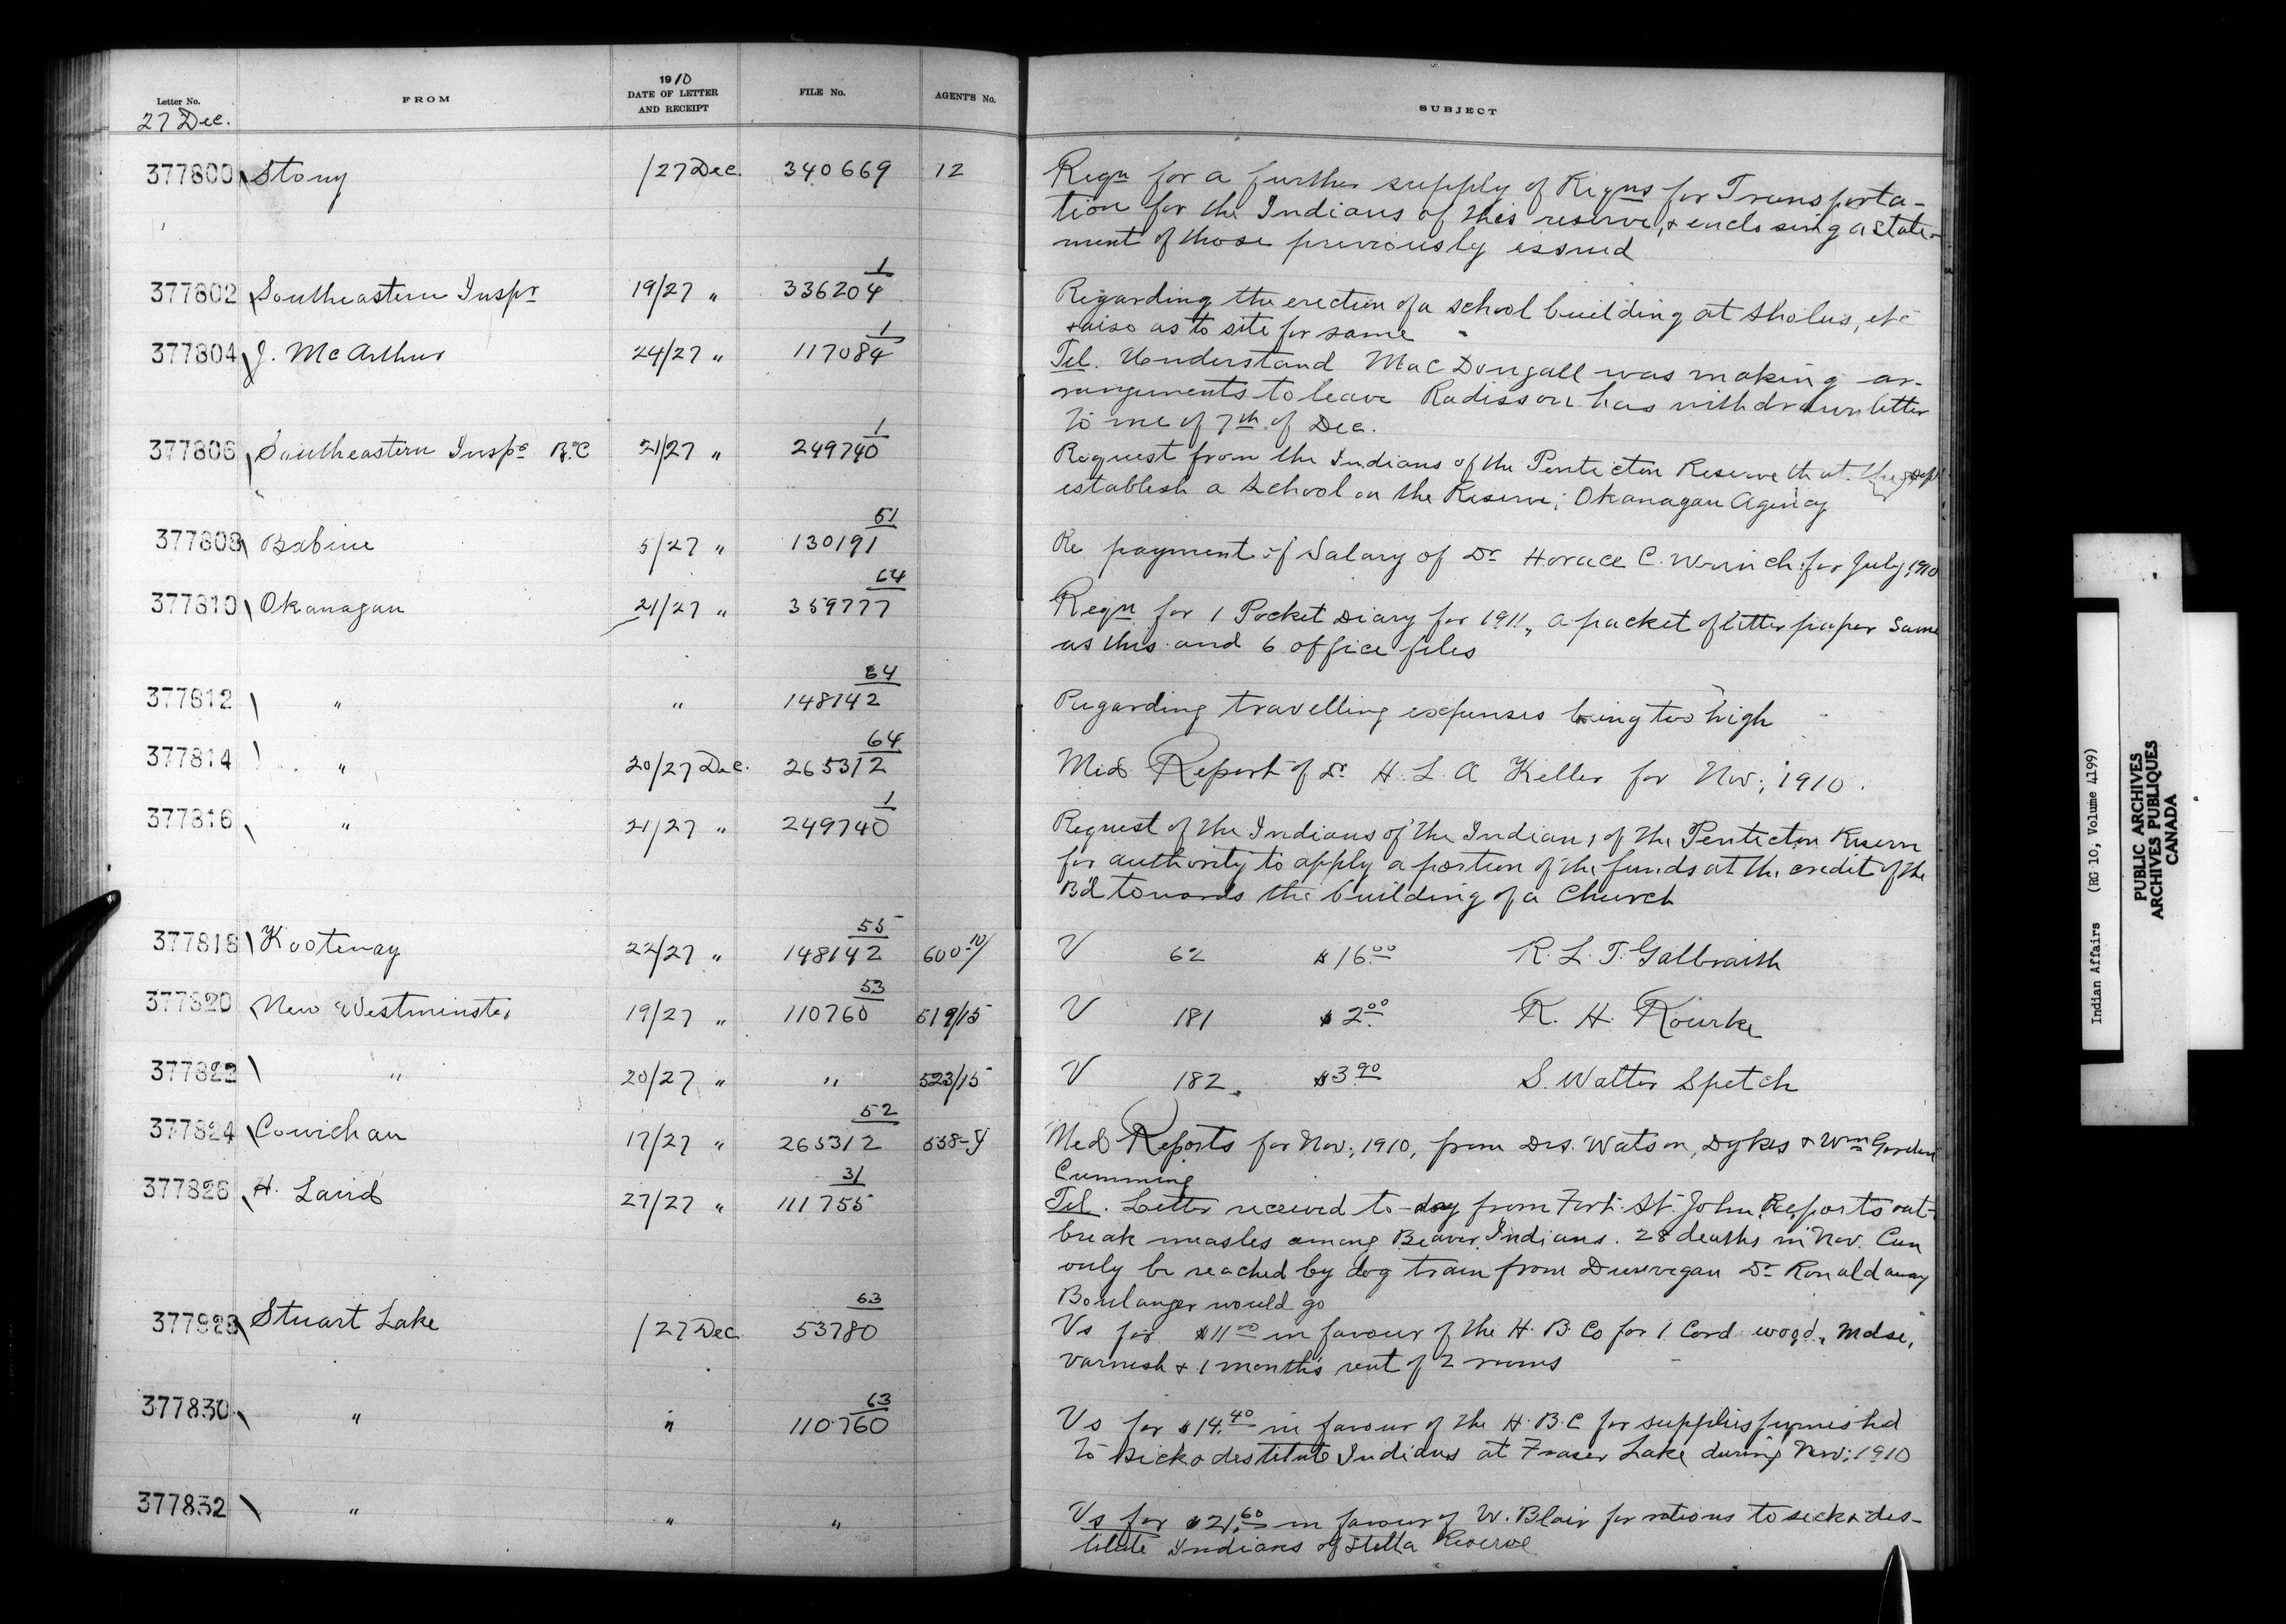 Letter No.
FROM
1910
DATE OF LETTER
AND RECEIPT
FILE No.
AGENT'S No.
SUBJECT
27 Dec.
377800 Stony /27 Dec. 340669 12
Reqn for a further supply of Reqns for Transporta-
tion for the Indians of this reserve, & enclosing a state-
ment of those previously issued
377802 Southeastern Inspr 19/27 " 336204 1
Regarding the erection of a school building at Sholus, etc
& also as to site for same
377804 J. McArthur 24/27 " 117084 1
Tel. Understand MacDougall was making ar-
rangements to leave Radisson has withdrawn letter
to me of 7th of Dec.
377806 Southeastern Inspr B.C 21/27 " 249740 1
Request from the Indians of the Penticton Reserve that the Dept
establish a School on the Reserve; Okanagan Agency
377808 Babine 5/27 " 130191 51
Re payment of Salary of Dr Horace C. Wrinch for July, 1910
377810 Okanagan 21/27 " 359777 64
Reqn for 1 Pocket Diary for 1911, a packet of letter paper same
as this and 6 office files
377812 " " 148142 64
Regarding travelling expenses being too high
377814 " 20/27 Dec. 265312 64
Med Report of Dr H. L. A Keller for Nov; 1910.
377816 " 21/27 " 249740 1
Request of the Indians of the Indians of the Penticton Reserve
for authority to apply a portion of the funds at the credit of the
Bd towards the building of a Church
377818 Kootenay 22/27 " 148142 55 600-10/
V 62 $16.00 R. L. T. Galbraith
377820 New Westminster 19/27 " 110760 53 519/15
V 181 $2.00 R. H. Rourke
377822 " 20/27 " " 523/15
V 182 $3.90 S. Walter Spetch
377824 Cowichan 17/27 " 265312 52 558-Y
Med Reports for Nov; 1910, from Drs. Watson, Dykes & Wm Gordon
Cumming
377826 H. Laird 27/27 " 111755 31
Tel. Letter received to-day from Fort St. John Reports out-
break measles among Beaver Indians. 28 deaths in Nov. Can
only be reached by dog train from Dunvegan Dr Ronald away
Boulanger would go
377828 Stuart Lake /27 Dec 53780 63
Vs for $11.00 in favour of the H. B. Co for 1 Cord wood, Mdse,
varnish & 1 month's rent of 2 rooms
377830 " " 110760 63
Vs for $14.40 in favour of the H. B. C for supplies furnished
to sick & destitute Indians at Fraser Lake during Nov; 1910
377832 " " "
Vs for $21.60 in favour of W. Blair for rations to sick & des-
titute Indians of Stella Reserve
Indian Affairs (RG 10, Volume 4199)
PUBLIC ARCHIVES
ARCHIVES PUBLIQUES
CANADA